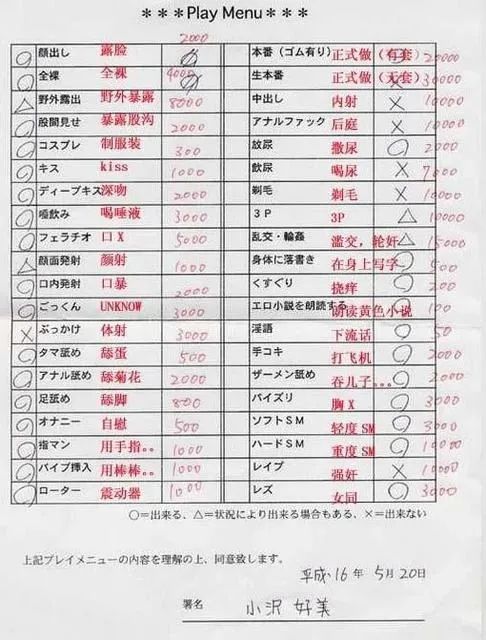 ***Play Menu***
2000
○ 顔出し 露脸 本番（ゴム有り） 正式做（有套） ○ 20000
○ 全裸 全裸 4000 生本番 正式做（无套） × 30000
△ 野外露出 野外暴露 8000 中出し 内射 × 10000
○ 股間見せ 暴露股沟 2000 アナルファック 后庭 × 10000
○ コスプレ 制服装 300 放尿 撒尿 ○ 2000
○ キス kiss 1000 飲尿 喝尿 × 7000
○ ディープキス 深吻 2000 剃毛 剃毛 × 10000
○ 唾飲み 喝唾液 3000 ３Ｐ 3P △ 10000
○ フェラチオ 口X 5000 乱交・輪姦 滥交，轮奸 △ 15000
△ 顔面発射 颜射 1000 身体に落書き 在身上写字 ○ 500
○ 口内発射 口暴 2000 くすぐり 挠痒 ○ 200
○ ごっくん UNKNOW 3000 エロ小説を朗読する 朗读黄色小说 ○ 100
× ぶっかけ 体射 3000 淫語 下流话 ○ 50
○ タマ舐め 舔蛋 500 手コキ 打飞机 ○ 2000
○ アナル舐め 舔菊花 2000 ザーメン舐め 吞儿子。。。 ○ 2000
○ 足舐め 舔脚 800 パイズリ 胸X ○ 3000
○ オナニー 自慰 500 ソフトＳＭ 轻度 SM ○ 3000
○ 指マン 用手指。。 1000 ハードＳＭ 重度 SM ○ 10000
○ バイブ挿入 用棒棒。。 1000 レイプ 强奸 × 10000
○ ローター 震动器 1000 レズ 女同 ○ 3000
○＝出来る、△＝状況により出来る場合もある、×＝出来ない
上記プレイメニューの内容を理解の上、同意致します。
平成16年 5月20日
署名 小沢 好美